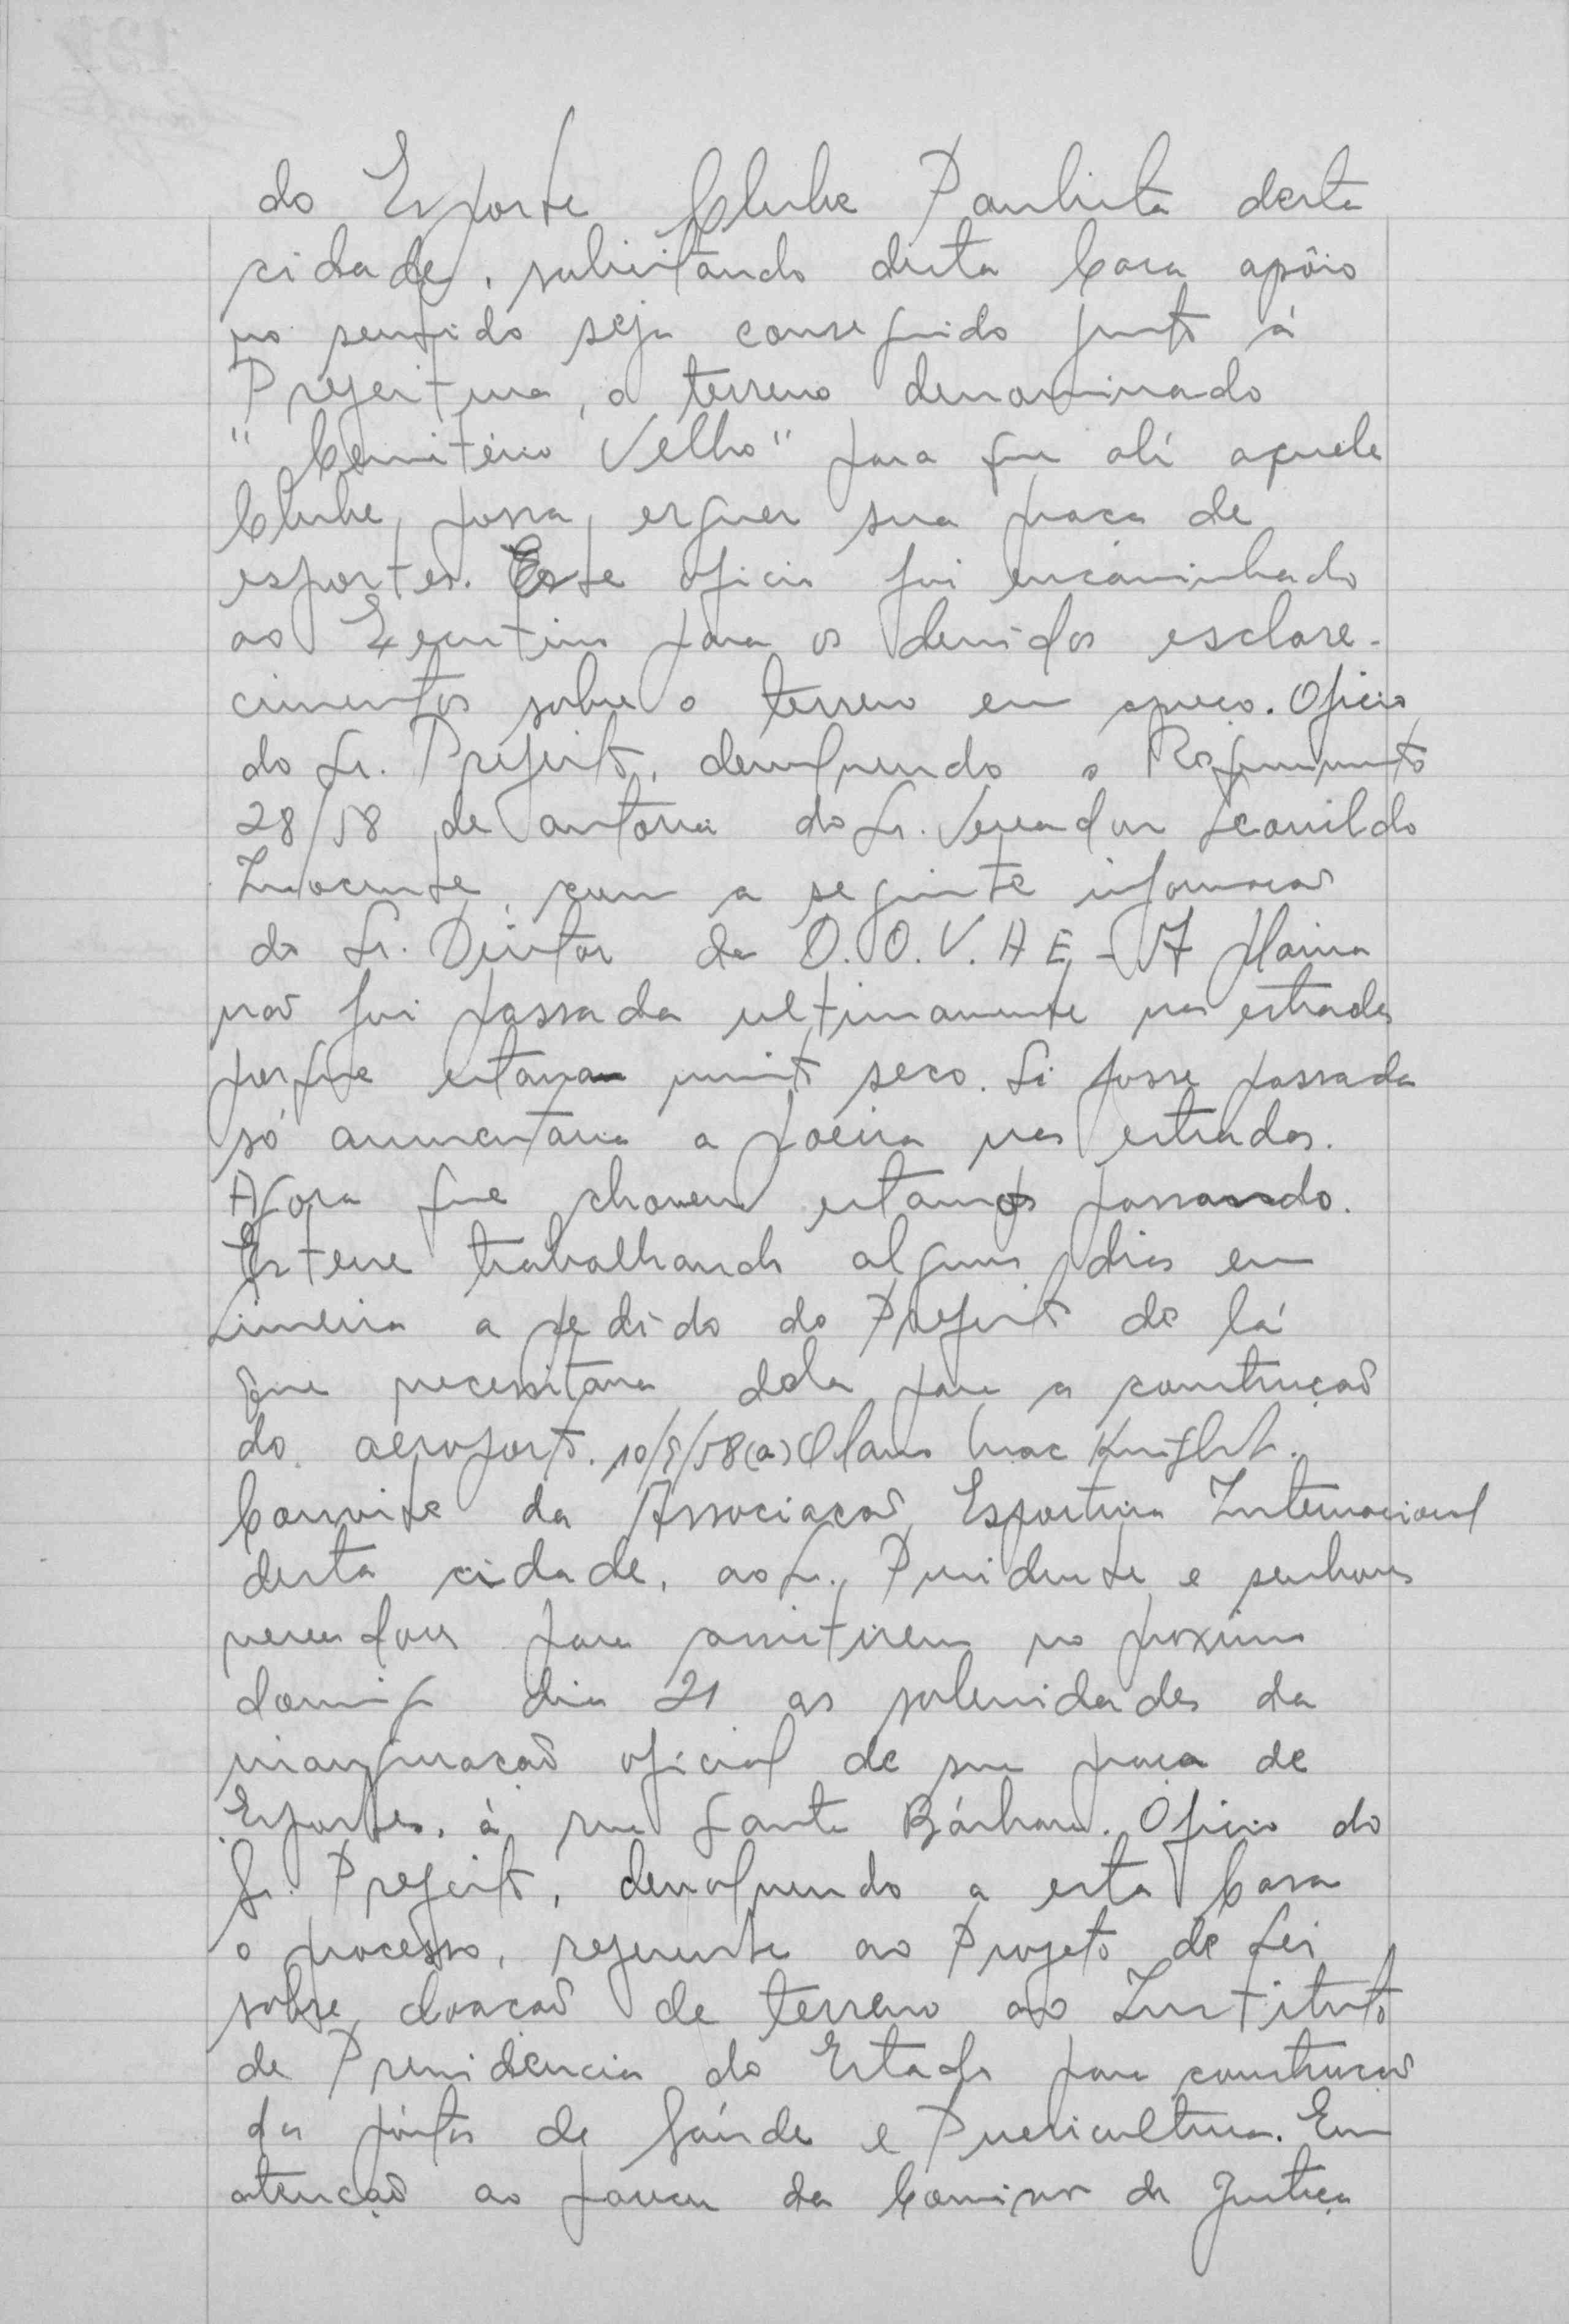 do Esporte Clube Paulista desta
cidade, solicitando desta Casa apôio
no sentido seja conseguido junto á
Prefeitura, o terreno denominado
"Cemitério Velho" para que alí aquele
Clube, possa, erguer sua praça de
esportes. Este oficio foi encaminhado
ao Executivo para os devidos esclare-
cimentos sobre o terreno em apreço. Oficio
do Sr. Prefeito, devolvendo o Requerimento
28/58 de autoria do Sr. Vereador Leonildo
Inocente, com a seguinte informação
do Sr. Diretor da D.O.V.A E - A Plaina
não foi passada ultimamente nas estradas
porque estava muito seco. Si fosse passada
só aumentaria a poeira nas estradas.
Agora que choveu estamos passando.
Esteve trabalhando alguns dias em
Limeira a pedido do Prefeito de lá
que necessitava dela para a construção
do aeroporto. 10/9/58 (a) Olavo Mac Knight.
Convite da Associação Esportiva Internacional
desta cidade, ao Sr. Presidente e senhores
vereadores para assistirem no proximo
domingo dia 21 as solenidades da
inauguração oficial de sua praça de
Esportes, á rua Santa Bárbara. Oficio do
Sr. Prefeito, devolvendo a esta Casa
o processo, referente ao Projeto de Lei
sobre doação de terreno ao Instituto
de Previdencia do Estado para construção
dos póstos de Saúde e Puericultura. Em
atenção ao parecer da Comissão de Justiça